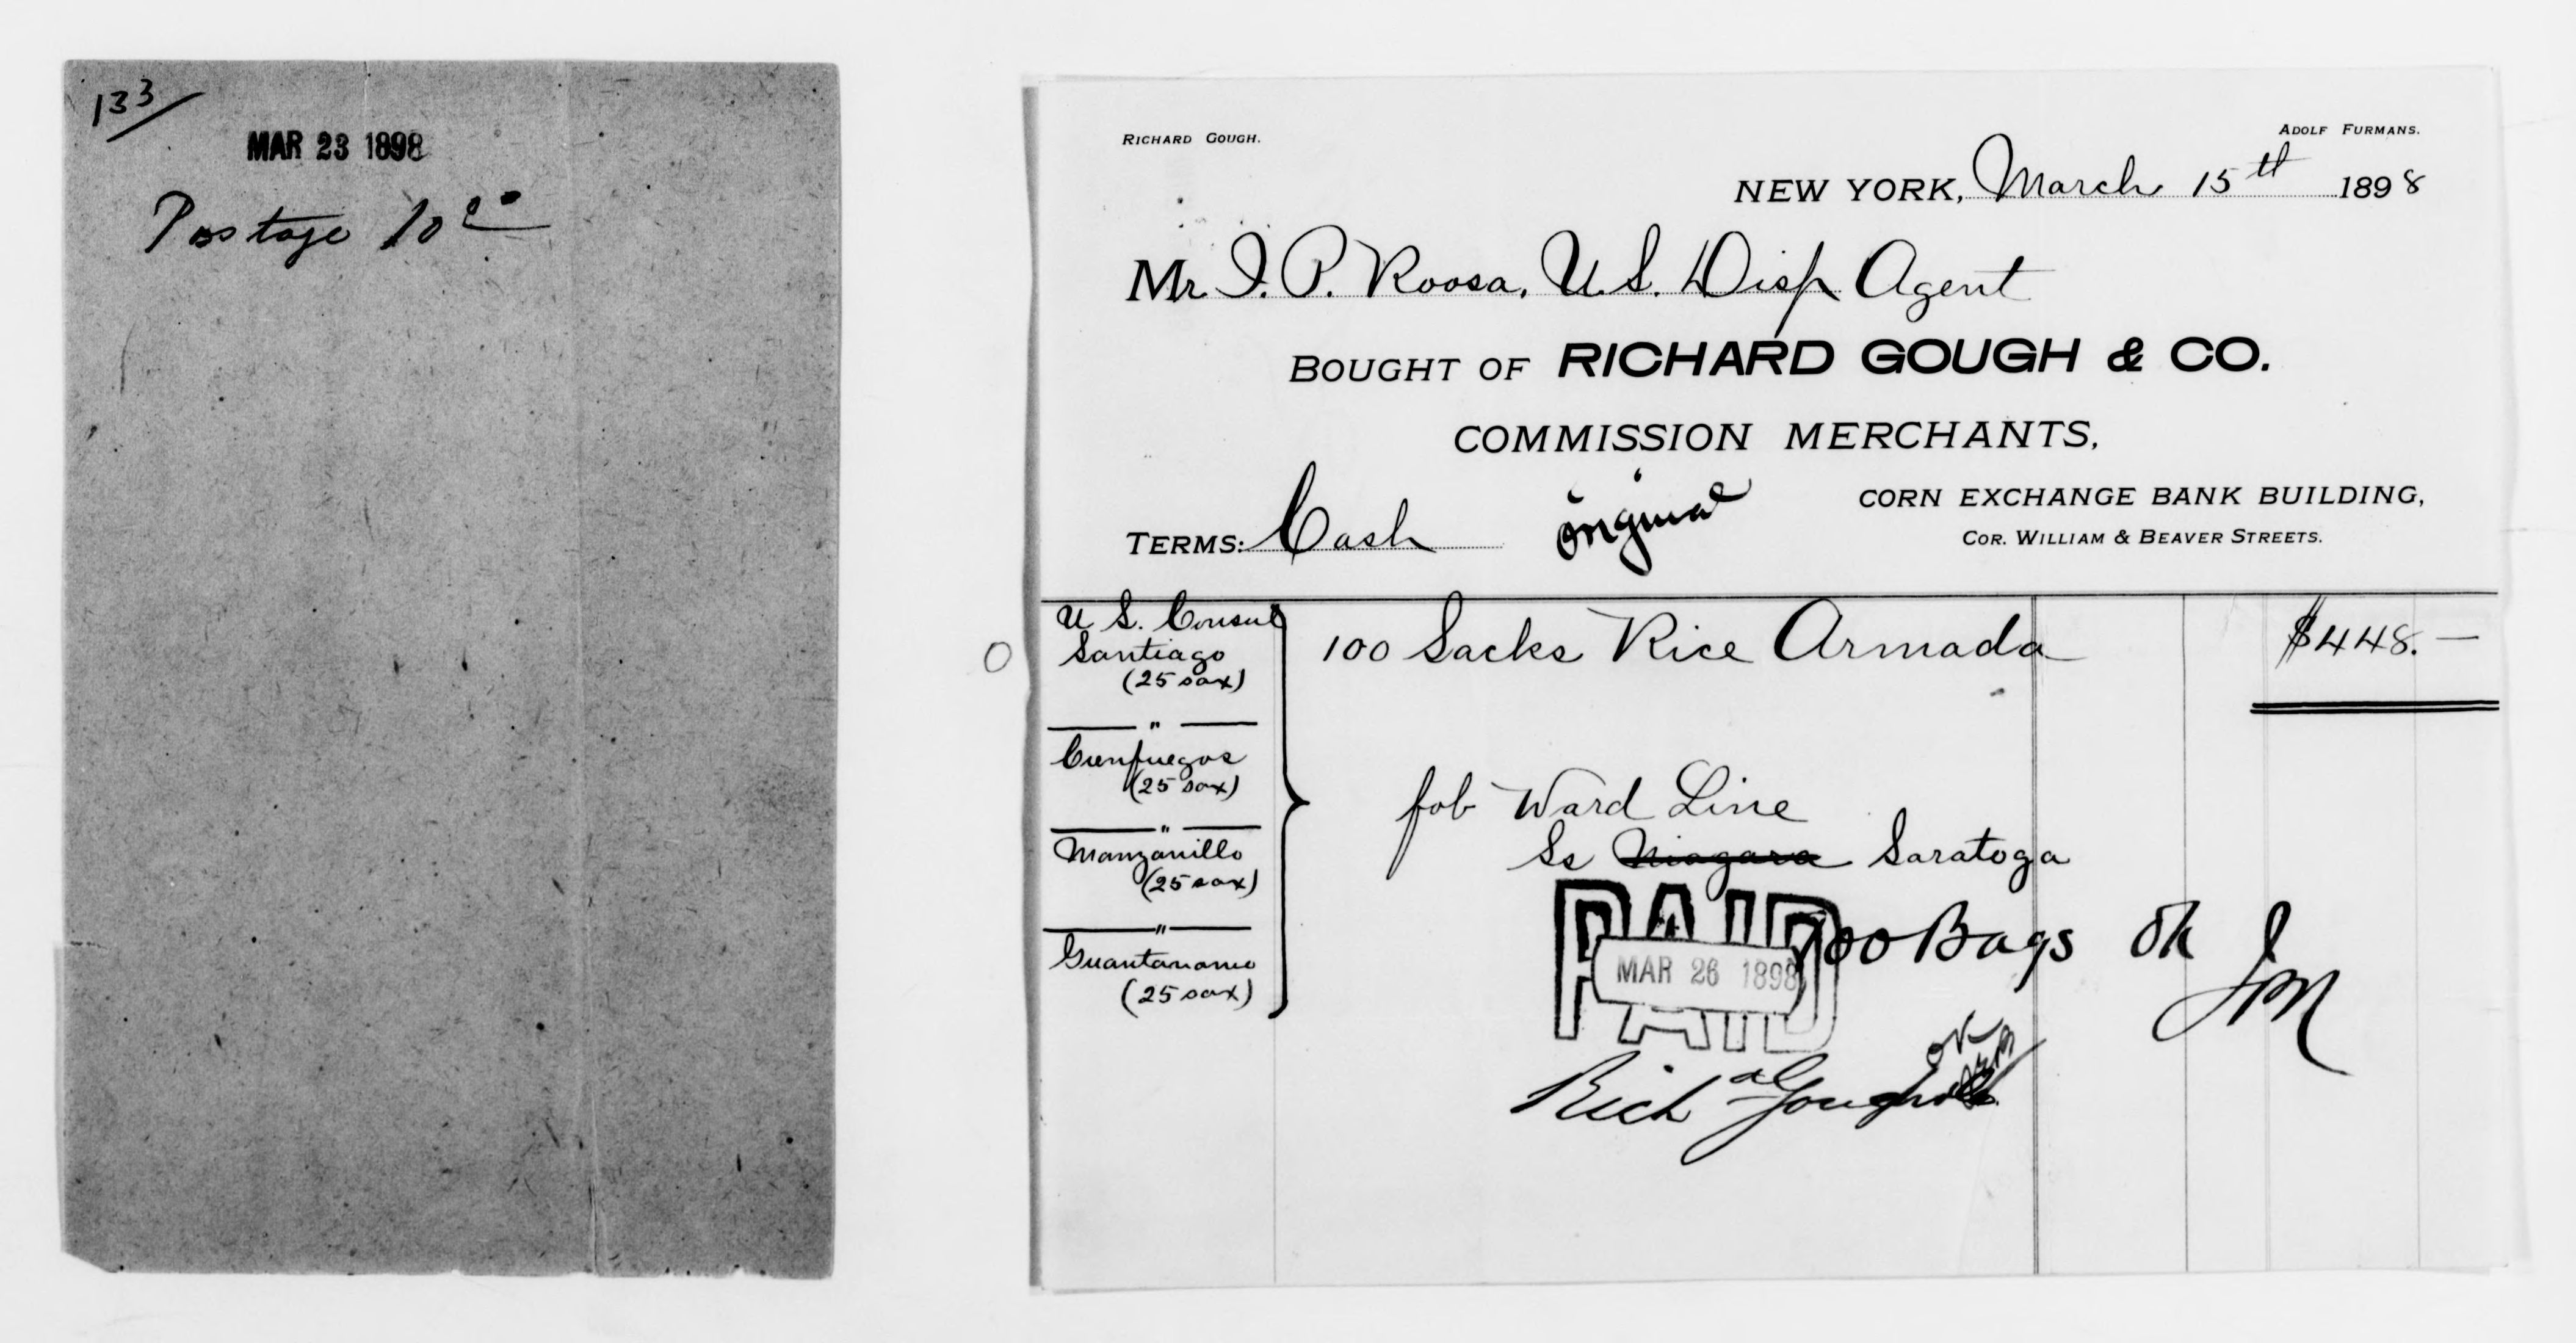 133/
MAR 23 1898
Postage 10 00
RICHARD GOUGH.
ADOLF FURMANS.
NEW YORK, March 15th 1898
Mr. I. P. Roosa, U.S. Disp Agent
BOUGHT OF RICHARD GOUGH & CO.
COMMISSION MERCHANTS,
CORN EXCHANGE BANK BUILDING,
COR. WILLIAM & BEAVER STREETS.
TERMS: Cash
original
U S. Consul
Santiago
(25 sax)
"
Cienfuegos
(25 sax)
"
Manzanillo
(25 sax)
"
Guantanamo
(25 sax)
100 Sacks Rice Armada $448.—
fob Ward Line
Ss Niagara Saratoga
PAID
MAR 26 1898
100 Bags OK
JM
OK
Richd Gough